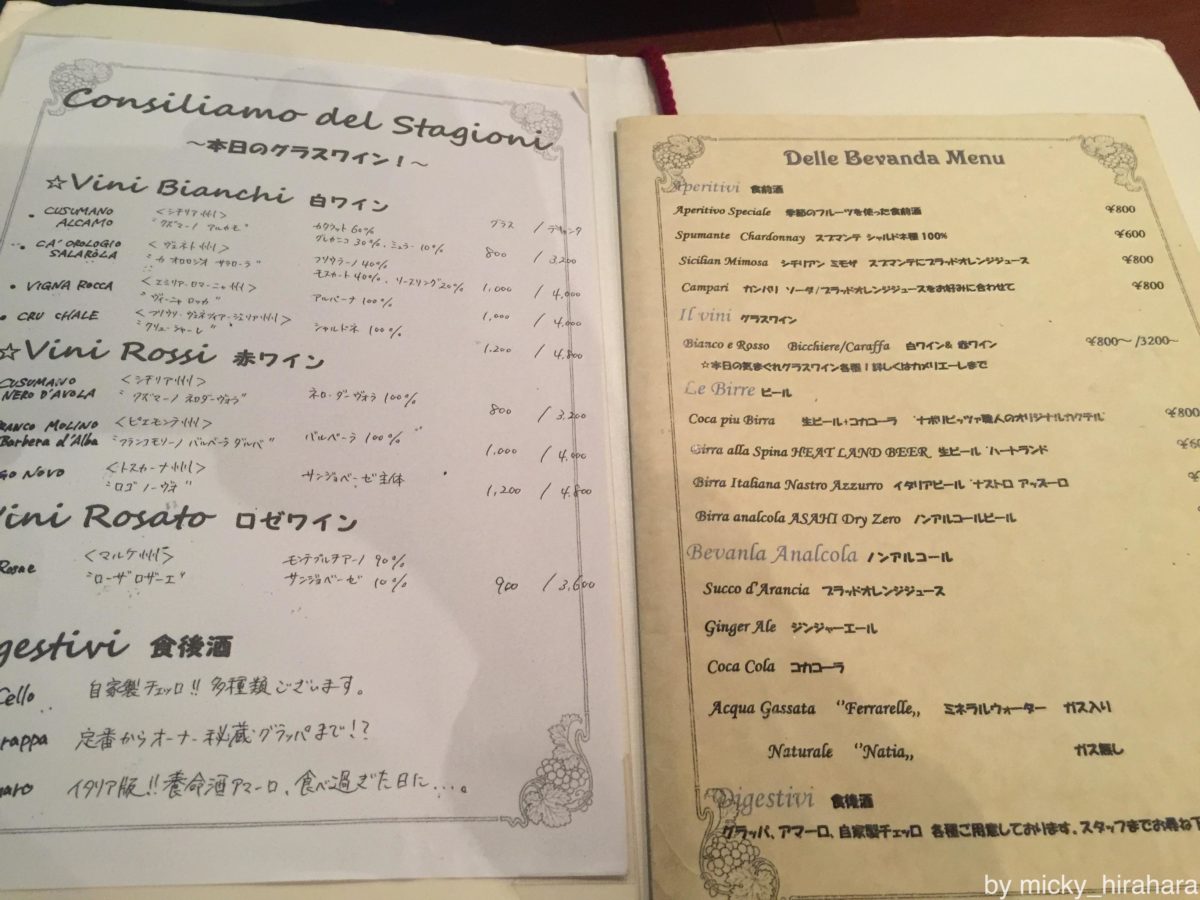 Consiliamo del Stagioni
～本日のグラスワイン！～
☆Vini Bianchi 白ワイン
グラス / デキャンタ
・CUSUMANO ALCAMO <シチリア州> "クズマーノ アルカモ" カタラット 60% グレカニコ 30%、ミュラー 10% 800 / 3,200
・CA' OROLOGIO SALAROLA <ヴェネト州> "カ オロロジオ サラローラ" フリウラーノ 40% モスカート 40%、リースリング 20% 1,000 / 4,000
・VIGNA ROCCA <エミリア・ロマーニャ州> "ヴィーニャ ロッカ" アルバーナ 100% 1,000 / 4,000
・CRU CHALE <フリウリ・ヴェネツィア・ジュリア州> "クリュー シャーレ" シャルドネ 100% 1,200 / 4,800
☆Vini Rossi 赤ワイン
CUSUMANO NERO D'AVOLA <シチリア州> "クズマーノ ネロダーヴォラ" ネロ・ダーヴォラ 100% 800 / 3,200
RANCO MOLINO Barbera d'Alba <ピエモンテ州> "フランコモリーノ バルベーラ ダルバ" バルベーラ 100% 1,000 / 4,000
GO NOVO <トスカーナ州> "ロゴ ノーヴォ" サンジョベーゼ主体 1,200 / 4,800
Vini Rosato ロゼワイン
Rosae <マルケ州> "ローザロザーエ" モンテプルチアーノ 90% サンジョベーゼ 10% 900 / 3,600
gestivi 食後酒
Cello 自家製チェッロ!! 多種類ございます。
rappa 定番からオーナー秘蔵グラッパまで!?
maro イタリア版!! 養命酒アマーロ、食べ過ぎた日に...。
Delle Bevanda Menu
Aperitivi 食前酒
Aperitivo Speciale 季節のフルーツを使った食前酒 ¥800
Spumante Chardonnay スプマンテ シャルドネ種 100% ¥600
Sicilian Mimosa シチリアン ミモザ スプマンテにブラッドオレンジジュース ¥800
Campari カンパリ ソーダ/ブラッドオレンジジュースをお好みに合わせて ¥800
Il vini グラスワイン
Bianco e Rosso Bicchiere/Caraffa 白ワイン& 赤ワイン ¥800～ /3200～
☆本日の気まぐれグラスワイン各種！詳しくはカメリエーレまで
Le Birre ビール
Coca piu Birra 生ビール・コカコーラ ‘ナポリピッツァ職人のオリジナルカクテル ¥800
Birra alla Spina HEAT LAND BEER 生ビール ‘ハートランド
Birra Italiana Nastro Azzurro イタリアビール ‘ナストロ アッズーロ
Birra analcola ASAHI Dry Zero ノンアルコールビール
Bevanla Analcola ノンアルコール
Succo d'Arancia ブラッドオレンジジュース
Ginger Ale ジンジャーエール
Coca Cola コカコーラ
Acqua Gassata ‘‘Ferrarelle,, ミネラルウォーター ガス入り
Naturale ‘‘Natia,, ガス無し
Digestivi 食後酒
グラッパ、アマーロ、自家製チェッロ 各種ご用意しております。スタッフまでお尋ね下
by micky_hirahara